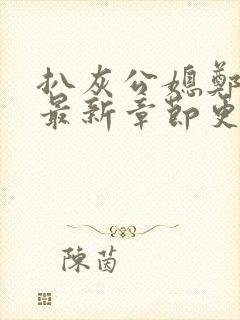 扒灰公媳鄭
最新章節更
陳茵